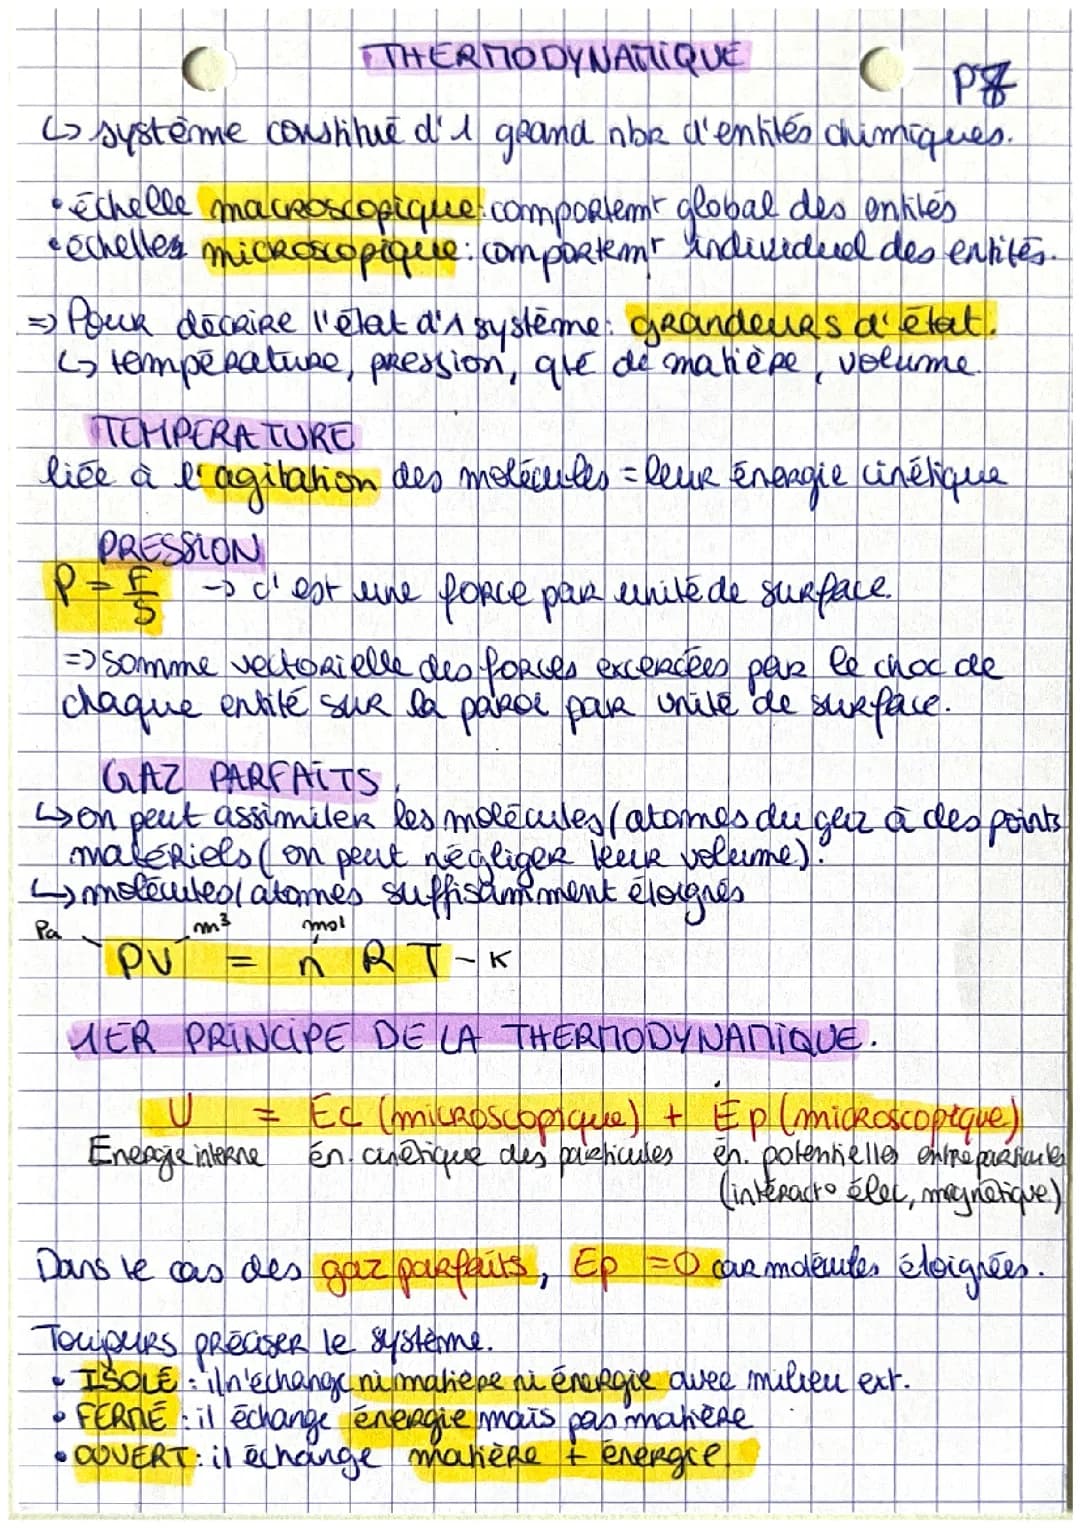 THERMODYNAMIQUE
↳ système constitué d'1 grand nbr d'entités chimiques.
• échelle macroscopique: comportemt global des entités
• échelles microscopique: comportemt individuel des entités.
=> Pour décrire l'état d'1 système: grandeurs d'état.
↳ température, pression, qté de matière, volume.
TEMPERATURE
liée à l'agitation des molécules = leur énergie cinétique
PRESSION
P = F/S → c'est une force par unité de surface.
=> somme vectorielle des forces excercées par le choc de
chaque entité sur la paroi par unité de surface.
GAZ PARFAITS
↳ on peut assimiler les molécules/atomes du gaz à des points
matériels (on peut négliger leur volume).
↳ molécules/atomes suffisamment éloignés
Pa m³ mol
PV = n R T - K
1ER PRINCIPE DE LA THERMODYNAMIQUE.
U = Ec (microscopique) + Ep (microscopique)
Energie interne én. cinétique des particules én. potentielles entre particules
(intéracto élec, magnétique)
Dans le cas des gaz parfaits, Ep = 0 car molécules éloignées.
Toujours préciser le système.
• ISOLÉ : il n'échange ni matière ni énergie avec milieu ext.
• FERMÉ : il échange énergie mais pas matière
• OUVERT : il échange matière + énergie.